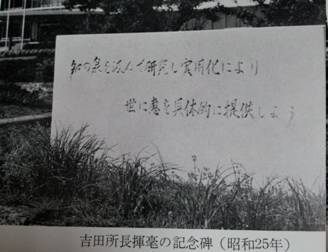 知の泉を汲んで研究し実用化により
世に恵を具体的に提供しよう
吉田所長揮毫の記念碑（昭和25年）